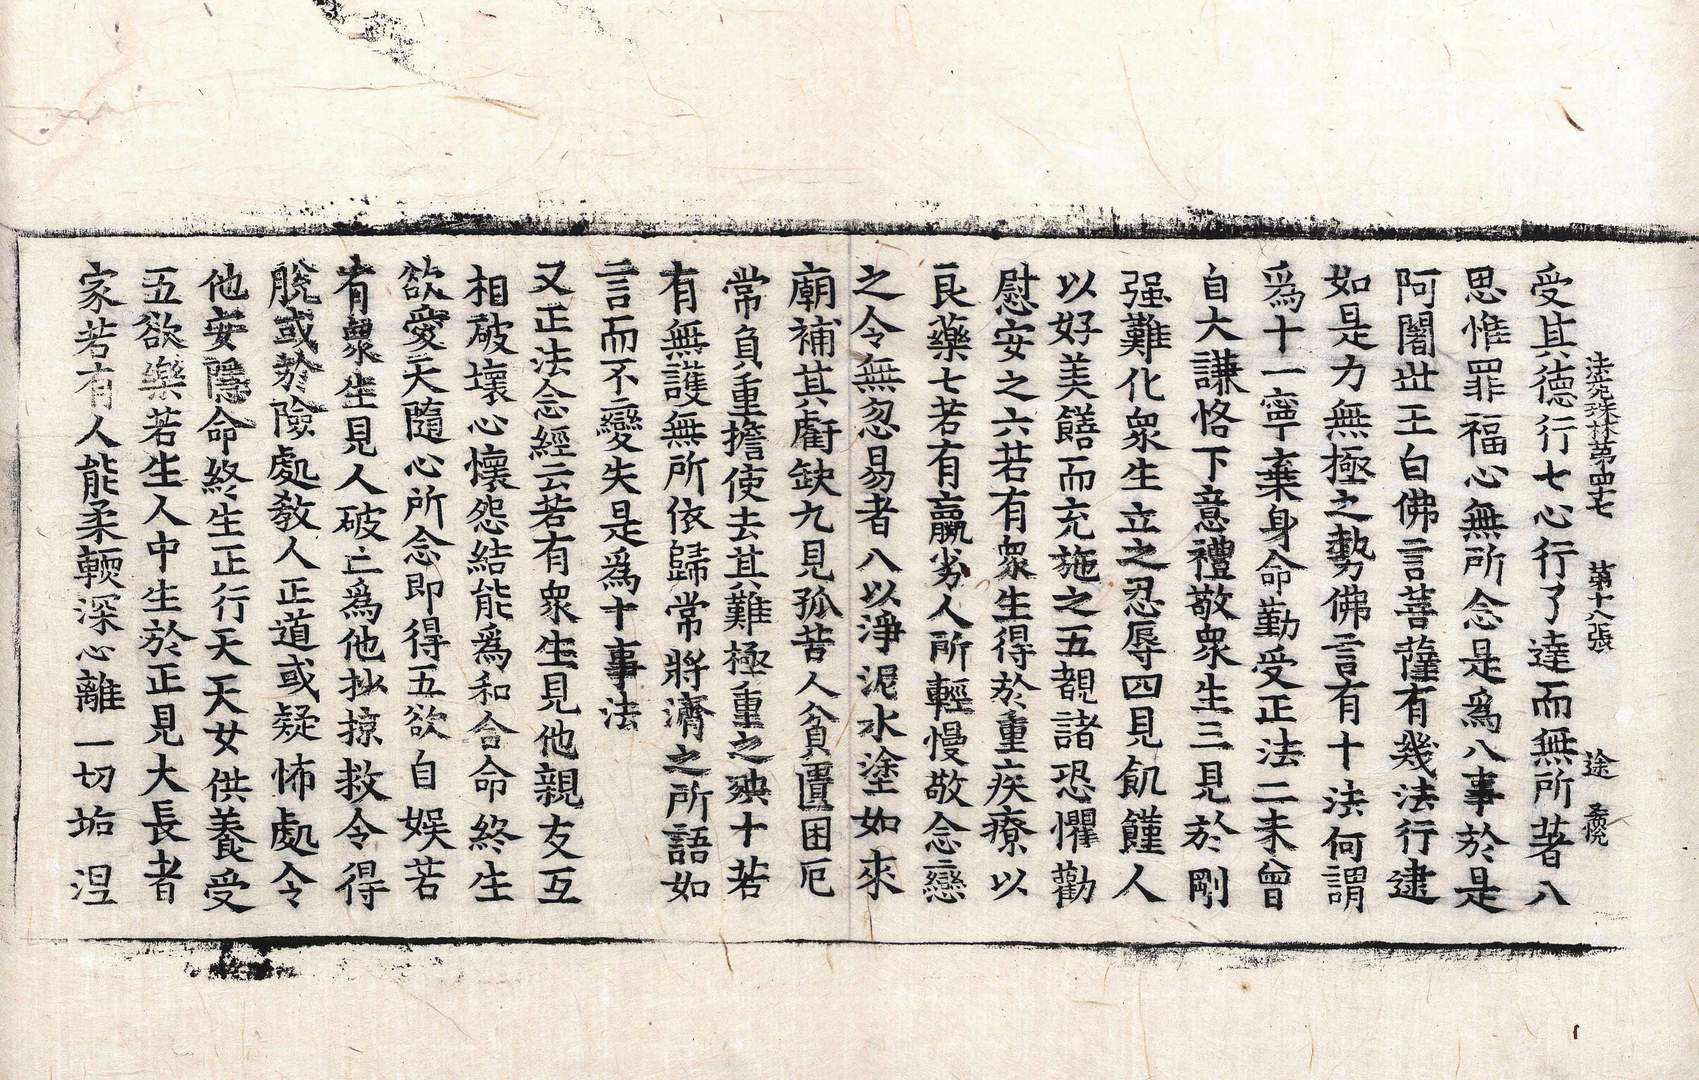 法苑珠林第四七　第十八張　途　孟悦
受其德行七心行了達而無所著八
思惟罪福心無所念是爲八事於是
阿闍世王白佛言菩薩有幾法行逮
如是力無極之勢佛言有十法何謂
爲十一寧棄身命勤受正法二未曾
自大謙恪下意禮敬衆生三見於剛
强難化衆生立之忍辱四見飢饉人
以好美饍而充施之五覩諸恐懼勸
慰安之六若有衆生得於重疾療以
良藥七若有羸劣人所輕慢敬念戀
之令無忽易者八以淨泥水塗如來
廟補其虧缺九見孤苦人貧匱困厄
常負重擔使去其難極重之殃十若
有無護無所依歸常將濟之所語如
言而不變失是爲十事法
又正法念經云若有衆生見他親友互
相破壞心懷怨結能爲和合命終生
欲愛天隨心所念即得五欲自娱若
有衆生見人破亡爲他抄掠救令得
脫或於險處教人正道或疑怖處令
他安隱命終生正行天天女供養受
五欲樂若生人中生於正見大長者
家若有人能柔輭深心離一切垢涅